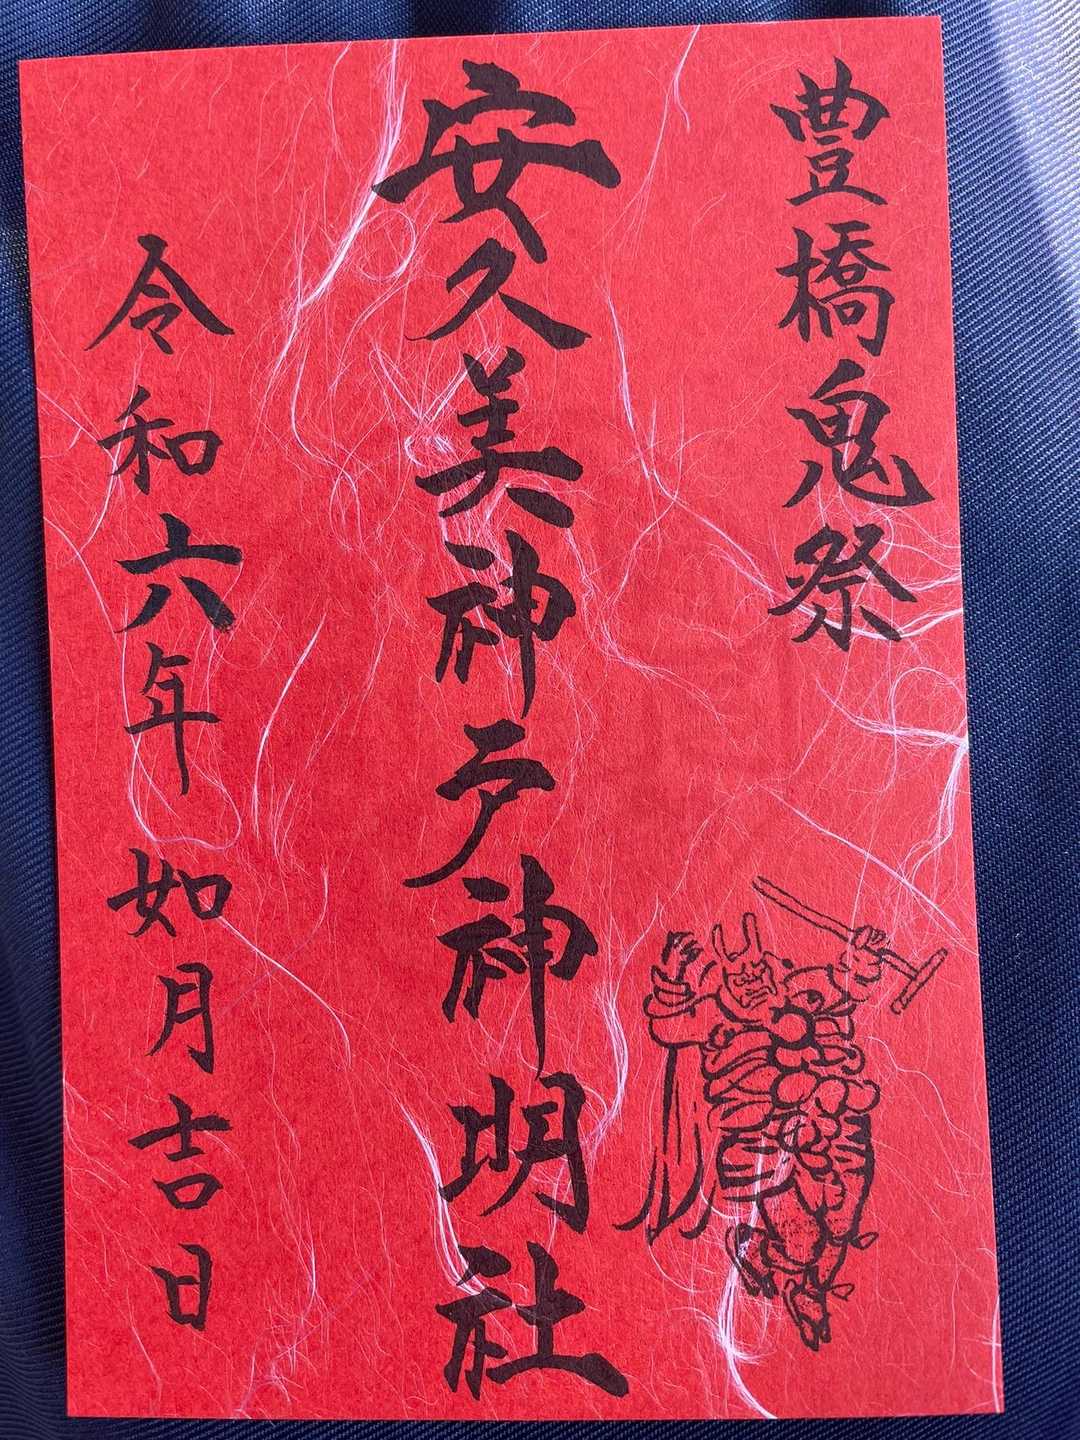 豊橋鬼祭
安久美神戸神明社
令和六年如月吉日